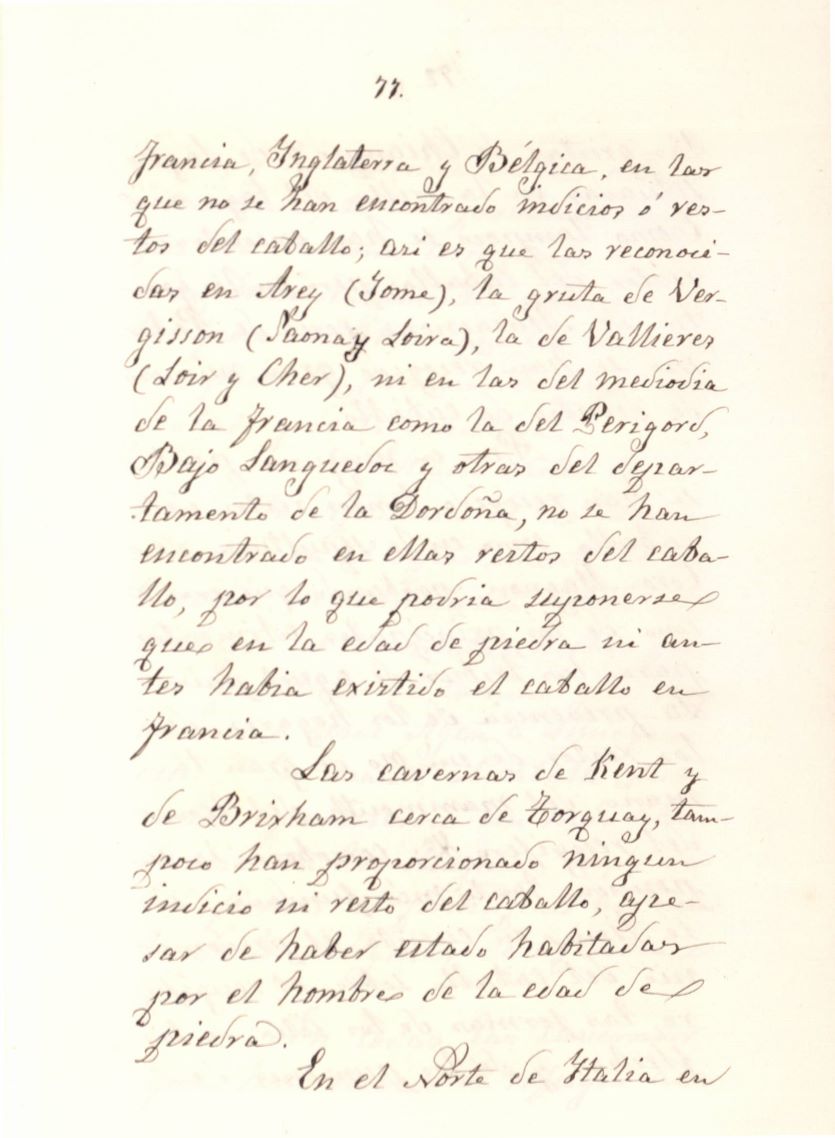 77.
Francia, Inglaterra y Bélgica, en las
que no se han encontrado indicios ó res-
tos del caballo; asi es que las reconoci-
das en Arey (Jome), la gruta de Ver-
gisson (Saona y Loira), la de Vallieres
(Loir y Cher), ni en las del mediodia
de la Francia como la del Perigord,
Bajo Languedoc y otras del depar-
tamento de la Dordoña, no se han
encontrado en ellas restos del caba-
llo, por lo que podria suponerse
que en la edad de piedra ni an-
tes habia existido el caballo en
Francia.
Las cavernas de Kent y
de Brixham cerca de Torquay, tam-
poco han proporcionado ningun
indicio ni resto del caballo, ape-
sar de haber estado habitadas
por el hombre de la edad de
piedra.
En el Norte de Italia en